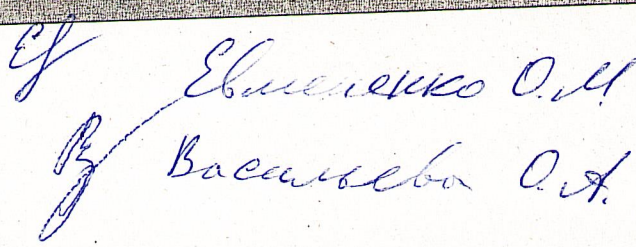 Евмененко О.М
Васильева О.А.